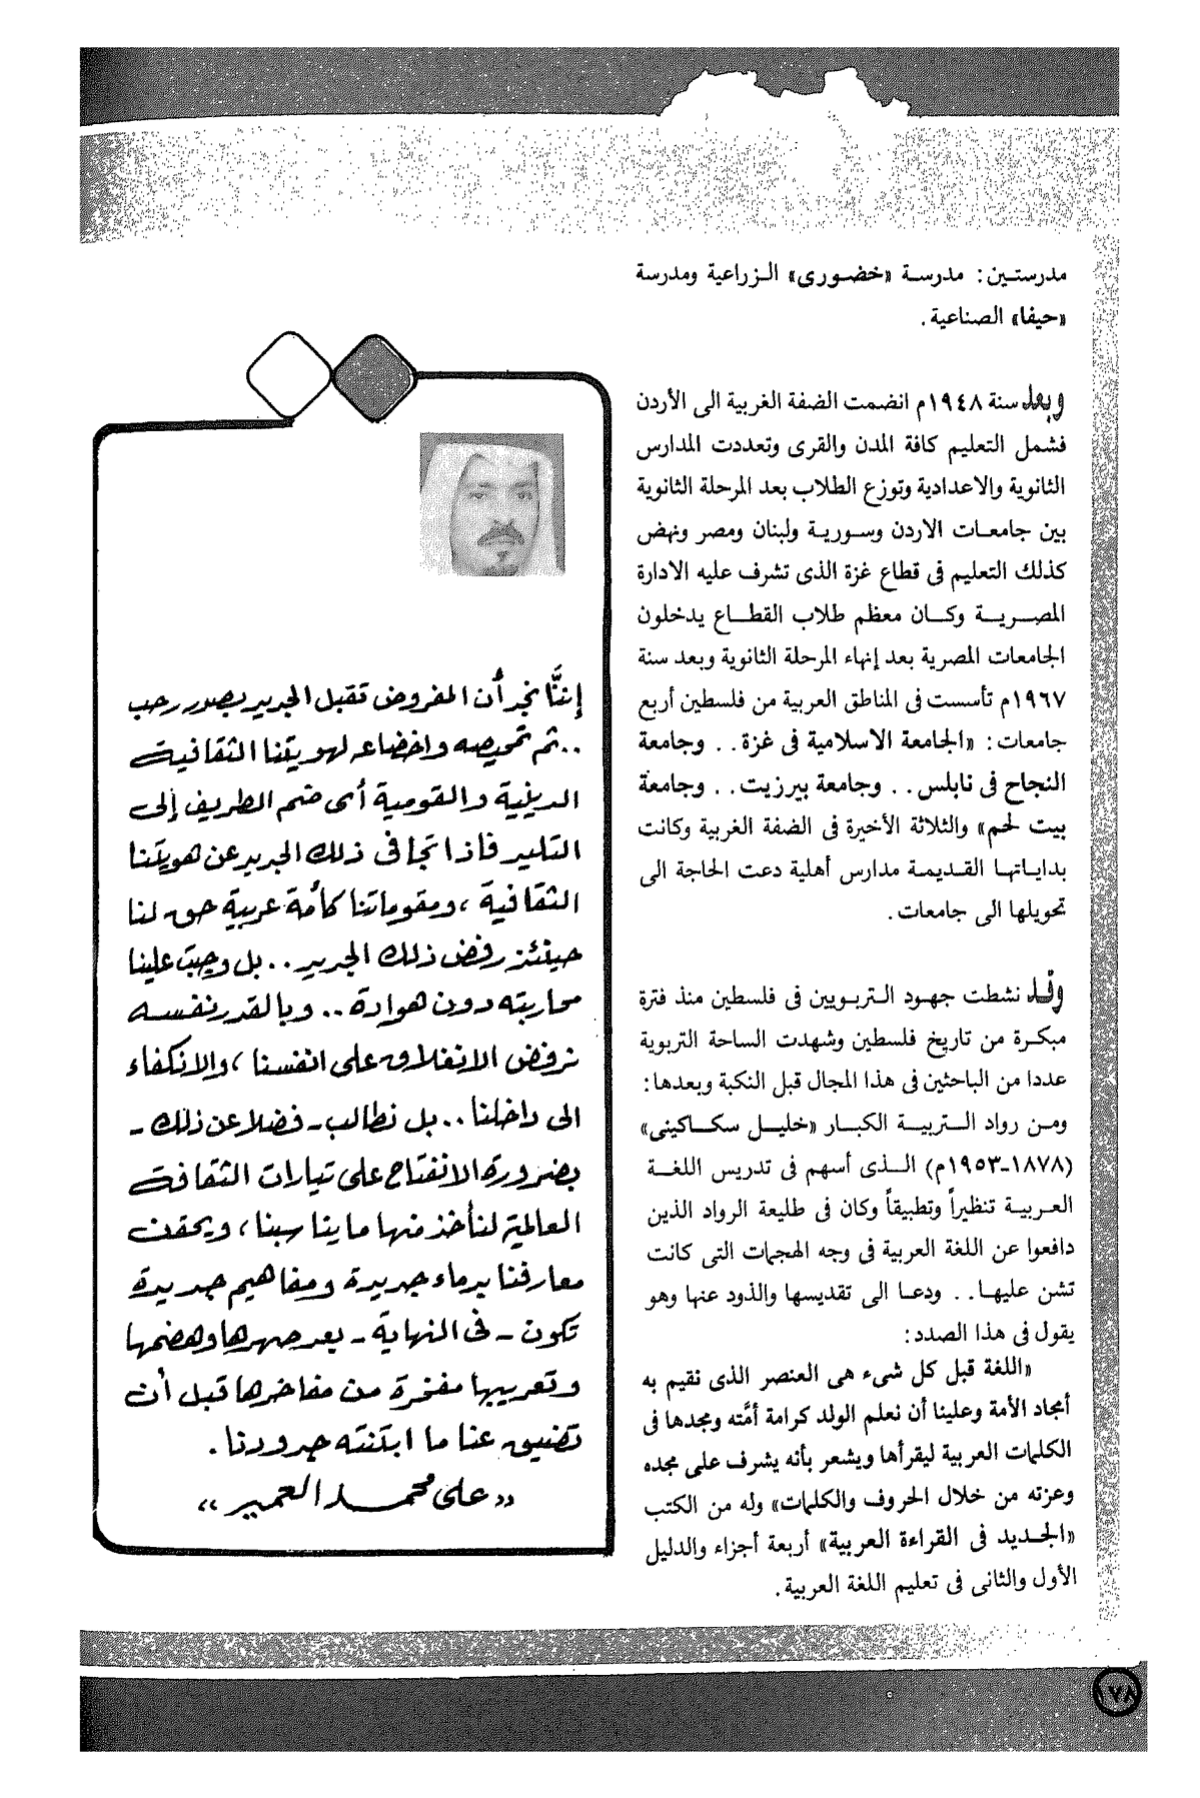 مدرستين: مدرسة «خضورى» الزراعية ومدرسة
«حيفا» الصناعية.
وبعد سنة ١٩٤٨م انضمت الضفة الغربية الى الأردن
فشمل التعليم كافة المدن والقرى وتعددت المدارس
الثانوية والاعدادية وتوزع الطلاب بعد المرحلة الثانوية
بين جامعات الاردن وسورية ولبنان ومصر ونهض
كذلك التعليم فى قطاع غزة الذى تشرف عليه الادارة
المصرية وكان معظم طلاب القطاع يدخلون
الجامعات المصرية بعد إنهاء المرحلة الثانوية وبعد سنة
١٩٦٧م تأسست فى المناطق العربية من فلسطين أربع
جامعات: «الجامعة الاسلامية فى غزة.. وجامعة
النجاح فى نابلس.. وجامعة بيرزيت.. وجامعة
بيت لحم» والثلاثة الأخيرة فى الضفة الغربية وكانت
بداياتها القديمة مدارس أهلية دعت الحاجة الى
تحويلها الى جامعات.
وقد نشطت جهود التربويين فى فلسطين منذ فترة
مبكرة من تاريخ فلسطين وشهدت الساحة التربوية
عددا من الباحثين فى هذا المجال قبل النكبة وبعدها:
ومن رواد التربية الكبار «خليل سكاكينى»
(١٨٧٨-١٩٥٣م) الذى أسهم فى تدريس اللغة
العربية تنظيراً وتطبيقاً وكان فى طليعة الرواد الذين
دافعوا عن اللغة العربية فى وجه الهجمات التى كانت
تشن عليها.. ودعا الى تقديسها والذود عنها وهو
يقول فى هذا الصدد:
«اللغة قبل كل شىء هى العنصر الذى نقيم به
أمجاد الأمة وعلينا أن نعلم الولد كرامة أمَّته ومجدها فى
الكلمات العربية ليقرأها ويشعر بأنه يشرف على مجده
وعزته من خلال الحروف والكلمات» وله من الكتب
«الجديد فى القراءة العربية» أربعة أجزاء والدليل
الأول والثانى فى تعليم اللغة العربية.
إننَّا نجد أن المفروض تقبل الجديد بصدر رحب
..ثم تمحيصه واخضاعه لهويتنا الثقافية
الدينية والقومية أى ضم الطريف إلى
التليد فاذا تجافى ذلك الجديد عن هويتنا
الثقافية، ومقوماتنا كأمة عربية حق لنا
حينئذ رفض ذلك الجديد.. بل وجب علينا
محاربته دون هوادة.. وبالقدر نفسه
نرفض الانغلاق على انفسنا، والانكفاء
الى داخلنا.. بل نطالب - فضلا عن ذلك -
بضرورة الانفتاح على تيارات الثقافة
العالمية لنأخذ منها ما يناسبنا، ويحقن
معارفنا بدماء جديدة ومفاهيم جديدة
تكون - فى النهاية - بعد صهرها وهضمها
وتعريبها مفخرة من مفاخرها قبل أن
تضيق عنا ما ابتنته جدودنا.
«على محمد العمير»
١٧٨